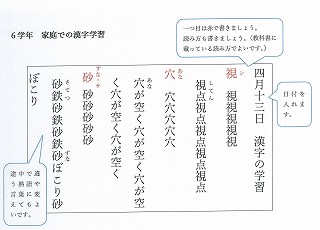 6学年　家庭での漢字学習
一つ目は赤で書きましょう。
読み方も書きましょう。(教科書に
載っている読み方でよいです。)
日付を
入れます。
四月十三日　漢字の学習
シ
視　視視視視
してん
視点視点視点視点視点
あな
穴　穴穴穴穴穴
あな
穴が空く穴が空く穴が空
く穴が空く穴が空く
すな・サ
砂　砂砂砂砂砂
さてつ　すな
砂鉄砂鉄砂鉄砂ぼこり砂
ぼこり
途中で熟語や
違う言葉に変
えてもよいです。